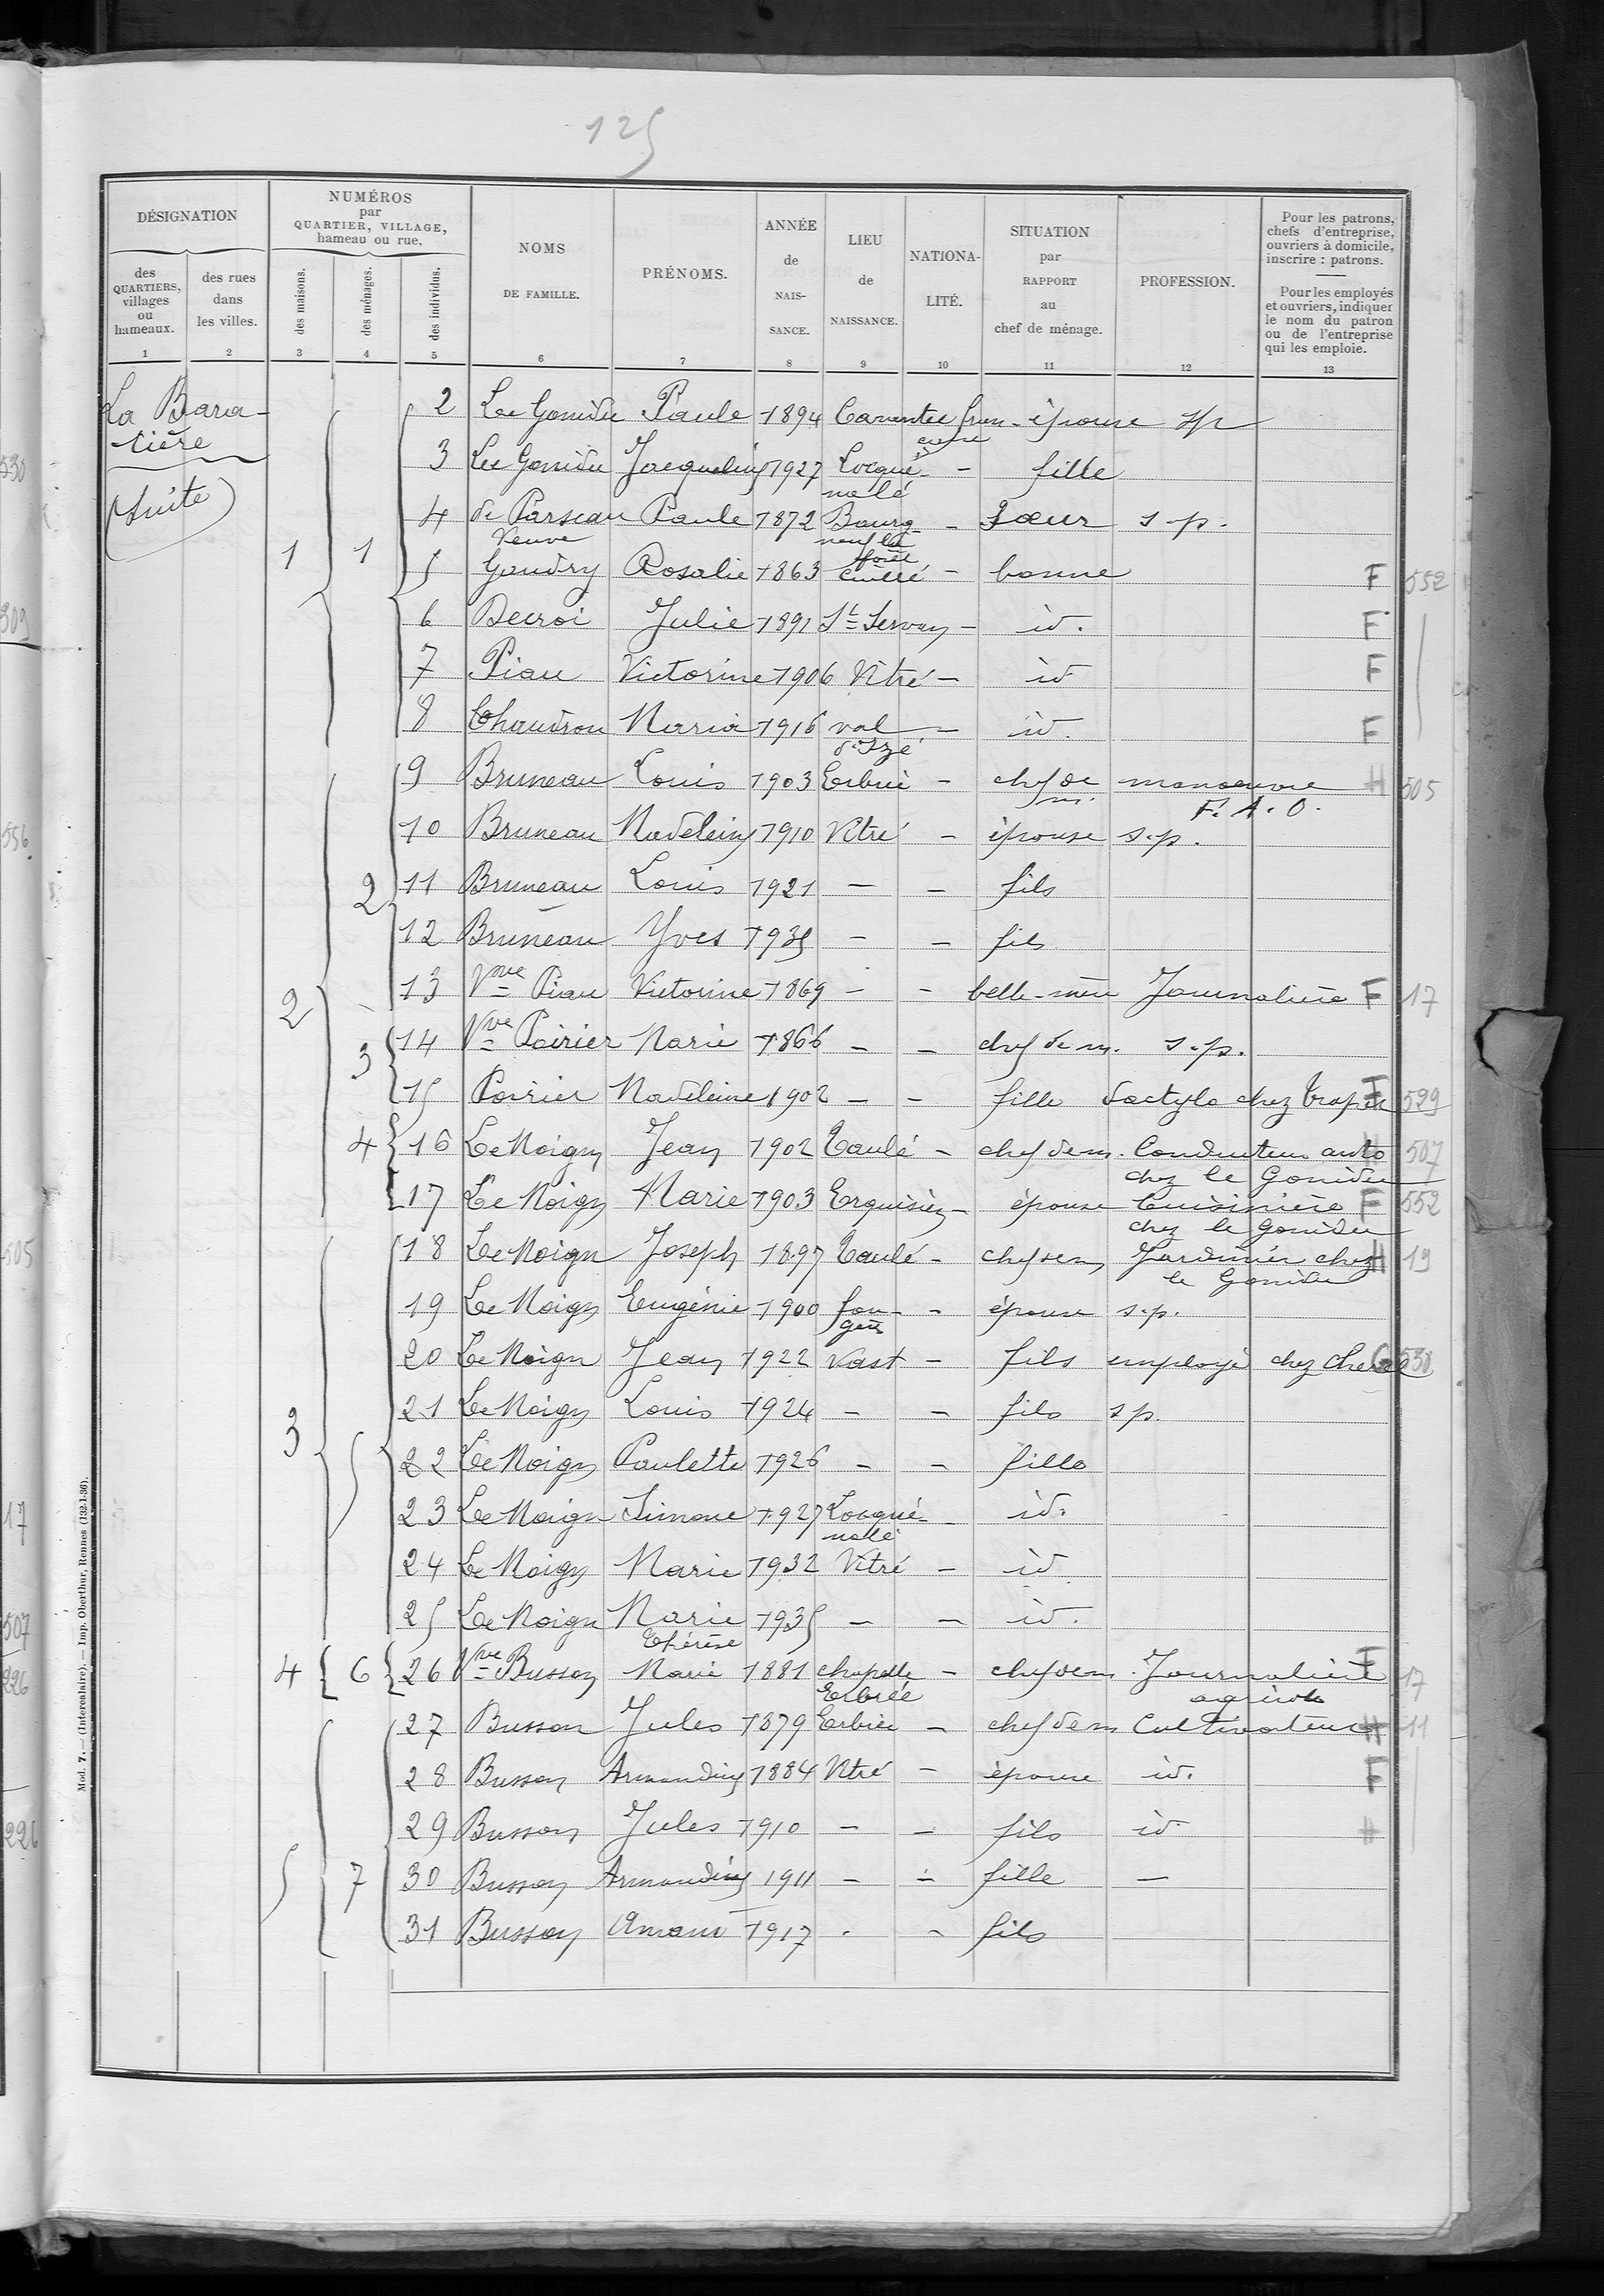 125
DÉSIGNATION
des QUARTIERS, villages ou hameaux.
des rues dans les villes.
NUMÉROS par QUARTIER, VILLAGE, hameau ou rue.
des maisons.
des ménages.
des individus.
NOMS DE FAMILLE.
PRÉNOMS.
ANNÉE de NAIS-SANCE.
LIEU de NAISSANCE.
NATIONA-LITÉ.
SITUATION par RAPPORT au chef de ménage.
PROFESSION.
Pour les patrons, chefs d'entreprise, ouvriers à domicile, inscrire : patrons.
Pour les employés et ouvriers, indiquer le nom du patron ou de l'entreprise qui les emploie.
1 2 3 4 5 6 7 8 9 10 11 12 13
La Bara-
tière
(suite)
2 Le Gonidec Paule 1894 Carantec épouse sp
3 Le Gonidec Jacqueline 1927 Locqué-nolé - fille
1 1 4 de Parscau Veuve Paule 1872 Bourg-neuf la forêt - Sœur s.p.
5 Gaudry Rosalie 1863 Cuillé - bonne F 552
6 Decroi Julie 1891 St Servan - id. F
7 Piau Victorine 1906 Vitré - id F
8 Chaudron Maria 1916 val d'Izé - id. F
9 Bruneau Louis 1903 Erbrée - chef de m. manœuvre F. A. O. H 505
10 Bruneau Madeleine 1910 Vitré - épouse s.p.
2 11 Bruneau Louis 1921 - - fils
12 Bruneau Yves 1935 - - fils
2 13 Vve Piau Victorine 1869 - - belle-mère Journalière F 17
3 14 Vve Poirier Marie 1866 - - chef de m. s.p.
15 Poirier Madeleine 1902 - - fille dactylo chez F 599
4 16 Le Moign Jean 1902 Taulé - chef de m. Conducteur auto chez le Gonidec H 507
17 Le Moign Marie 1903 - épouse Cuisinière chez le Gonidec F 552
18 Le Moign Joseph 1897 Taulé - chef de m Jardinier chez le Gonidec H 19
19 Le Moign Eugénie 1900 Fou-gères - épouse s.p.
20 Le Moign Jean 1922 Vast - fils employé chez
3 21 Le Moign Louis 1924 - - fils sp.
5 22 Le Moign Paulette 1926 - - fille
23 Le Moign Simone 1927 Locqué-nolé - id.
24 Le Moign Marie 1932 Vitré - id
25 Le Moign Marie Thérèse 1935 - - id.
4 6 26 Vve Busson Marie 1881 chapelle Erbrée - chef de m. Journalière agricole F 17
27 Busson Jules 1879 Erbrée - chef de m Cultivateur H 11
28 Busson Armandine 1884 Vitré - épouse id. F
29 Busson Jules 1910 - - fils id H
5 7 30 Busson Armandine 1911 - - fille -
31 Busson Amand 1917 - - fils
Mod. 7. — (Intercalaire). — Imp. Oberthur, Rennes (132.1-36).
530
309
556
505
17
507
226
226